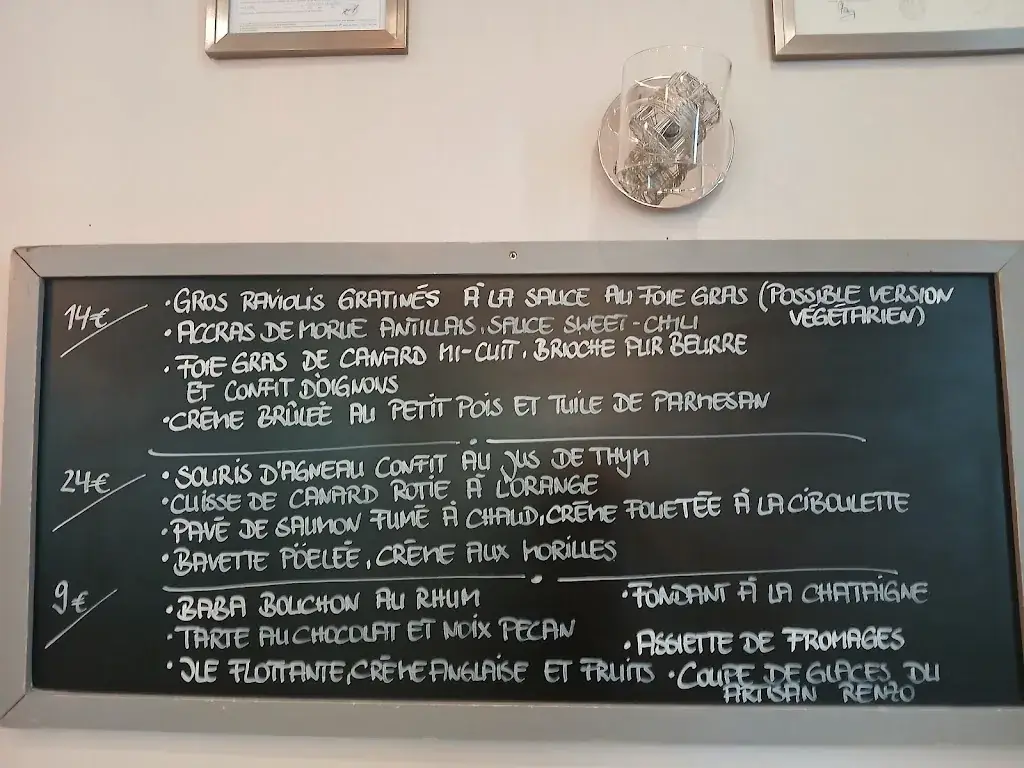 14€
• GROS RAVIOLIS GRATINÉS À LA SAUCE AU FOIE GRAS (POSSIBLE VERSION
VÉGÉTARIEN)
• ACCRAS DE MORUE ANTILLAIS, SAUCE SWEET-CHILI
• FOIE GRAS DE CANARD MI-CUIT, BRIOCHE PUR BEURRE
ET CONFIT D'OIGNONS
• CRÈME BRÛLEÉ AU PETIT POIS ET TUILE DE PARMESAN
24€
• SOURIS D'AGNEAU CONFIT AU JUS DE THYM
• CUISSE DE CANARD ROTIE À L'ORANGE
• PAVÉ DE SAUMON FUMÉ À CHAUD, CRÈME FOUETÉE À LA CIBOULETTE
• BAVETTE PÖELÉE, CRÈME AUX MORILLES
9€
• BABA BOUCHON AU RHUM
• TARTE AU CHOCOLAT ET NOIX PECAN
• ILE FLOTTANTE, CRÈME ANGLAISE ET FRUITS
• FONDANT À LA CHATAIGNE
• ASSIETTE DE FROMAGES
• COUPE DE GLACES DU
ARTISAN RENZO